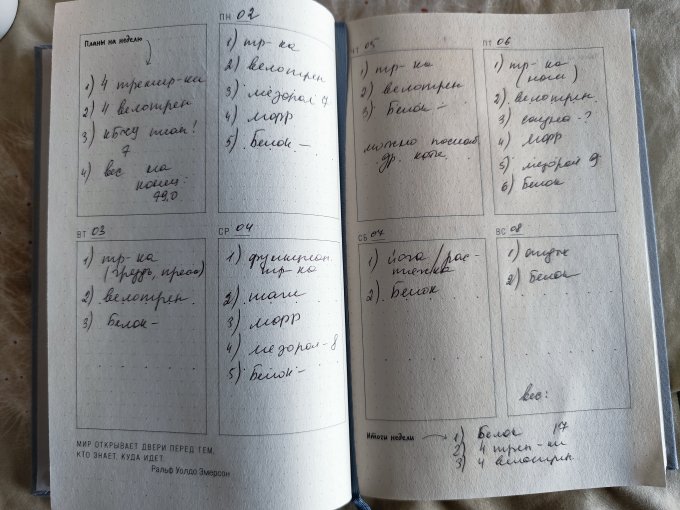 Планы на неделю
1) 4 тренир-ки
2) 4 велотрен
3) кбжу план!
7
4) вес на
конец:
79,0
ПН 02
1) тр-ка
2) велотрен
3) мезорол 7
4) морр
5) Белок -
ВТ 03
1) тр-ка
(грудь, пресс)
2) велотрен.
3) Белок -
СР 04
1) функцион.
тр-ка
2) шаги
3) морр
4) мезорол - 8
5) Белок -
МИР ОТКРЫВАЕТ ДВЕРИ ПЕРЕД ТЕМ,
КТО ЗНАЕТ, КУДА ИДЕТ.
Ральф Уолдо Эмерсон
ЧТ 05
1) тр-ка
2) велотрен
3) Белок -
можно
др.
ПТ 06
1) тр-ка
(ноги)
2) велотрен.
3) сауна - ?
4) морр
5) мезорол 9
6) Белок
СБ 07
1) йога / рас-
тяжка
2) Белок
ВС 08
1) отдых
2) Белок
вес:
Итоги недели
1) Белок 17
2) 4 трен-ки
3) 4 велотрен